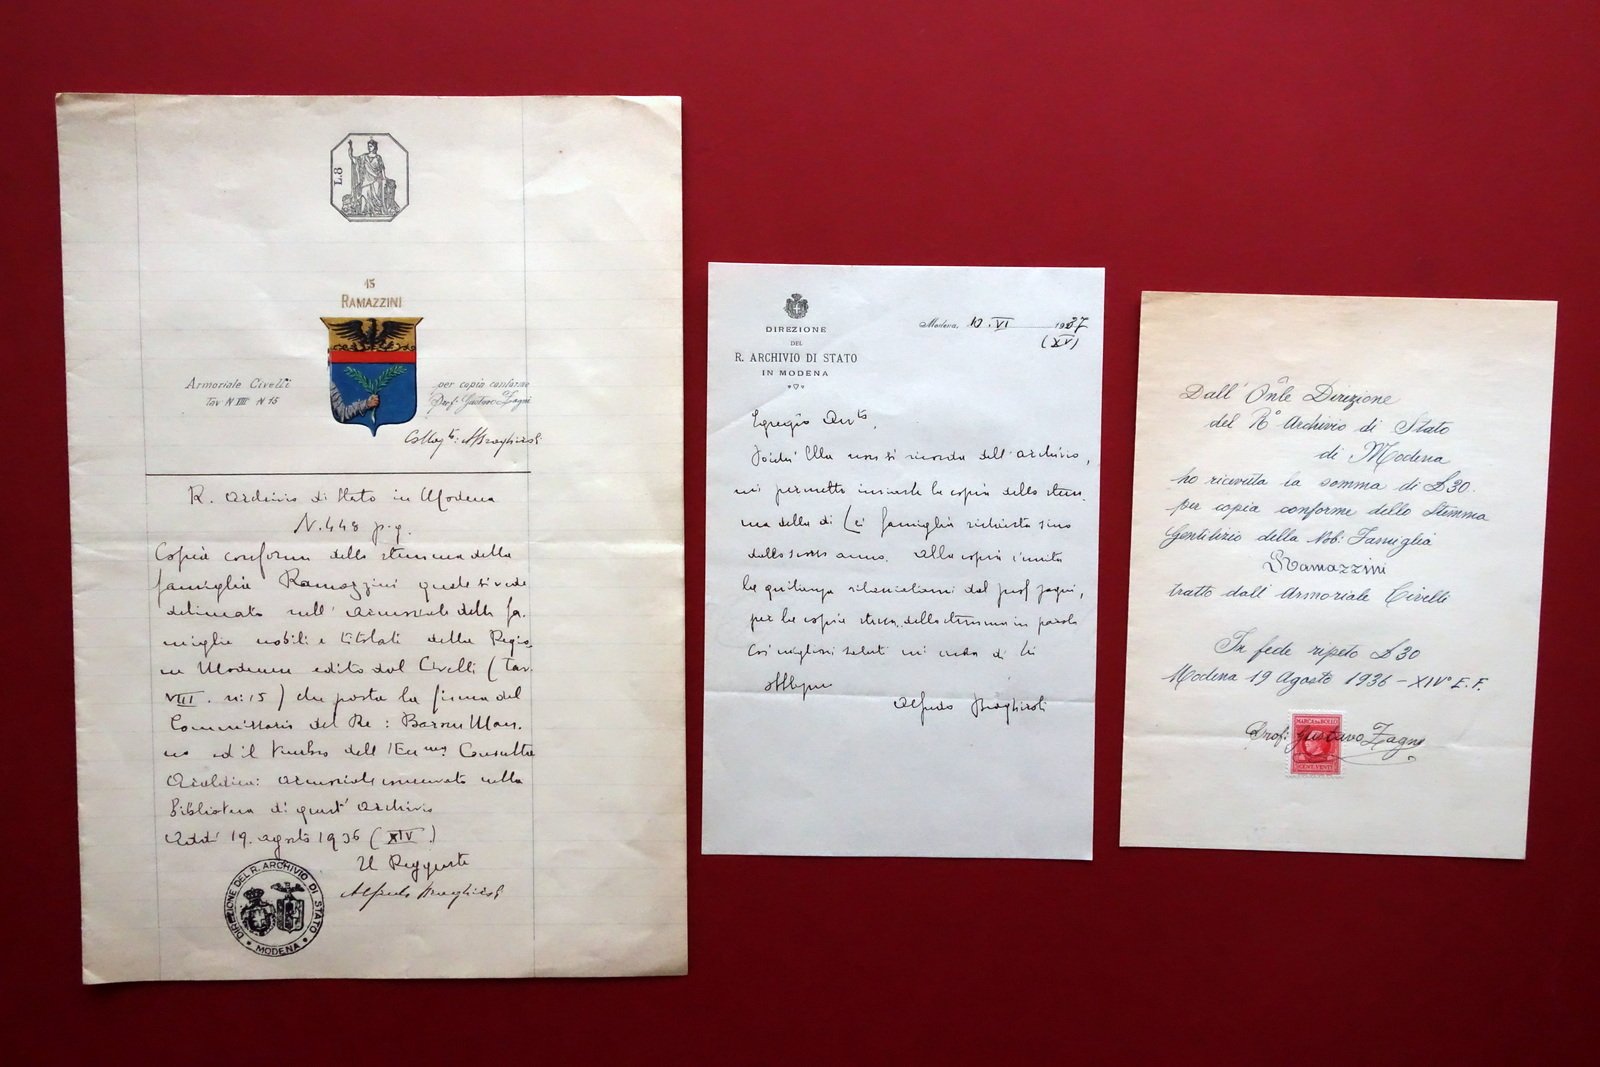 L.8
15
RAMAZZINI
Armoriale Civelli
Tav N VIII N 15
per copia conforme
Prof: Gustavo Zagni
R. Archivio di Stato in Modena
N. 448 p.g.
Copia conforme dello stemma della
famiglia Ramazzini quale si vede
delineato nell'Armoriale delle fa-
miglie nobili e titolati della Regio-
ne Modenese edito dal Civelli (Tav.
VIII. n. 15) che porta la firma del
Commissario del Re: Barone Man-
no ed il timbro dell'Ecc.ma Consulta
Araldica: Armoriale conservato nella
Biblioteca di quest'Archivio
Addì 19. agosto 1936 (XIV.)
Il Reggente
Alfredo Braghiroli
DIREZIONE DEL R. ARCHIVIO DI STATO
• MODENA •
DIREZIONE
DEL
R. ARCHIVIO DI STATO
IN MODENA
Modena, 10. VI 1937
(XV)
Egregio
Ella non si ricorda dell'archivio,
mi permetto inviarle la copia dello stem-
ma della di Lei famiglia richiesta sino
dallo scorso anno. Alla copia è unita
la quitanza rilasciatami dal prof Zagni,
per la copia stessa dello stemma in parola
Coi migliori saluti mi creda di Lei
Alfredo Braghiroli
Dall'Onle Direzione
del R° Archivio di Stato
di Modena
ho ricevuta la somma di L 30.
per copia conforme dello Stemma
Gentilizio della Nob: Famiglia
Ramazzini
tratto dall'Armoriale Civelli
In fede ripeto L 30
Modena 19 Agosto 1936 - XIV° E.F.
MARCA DA BOLLO
Prof: Gustavo Zagni
CENT. VENTI